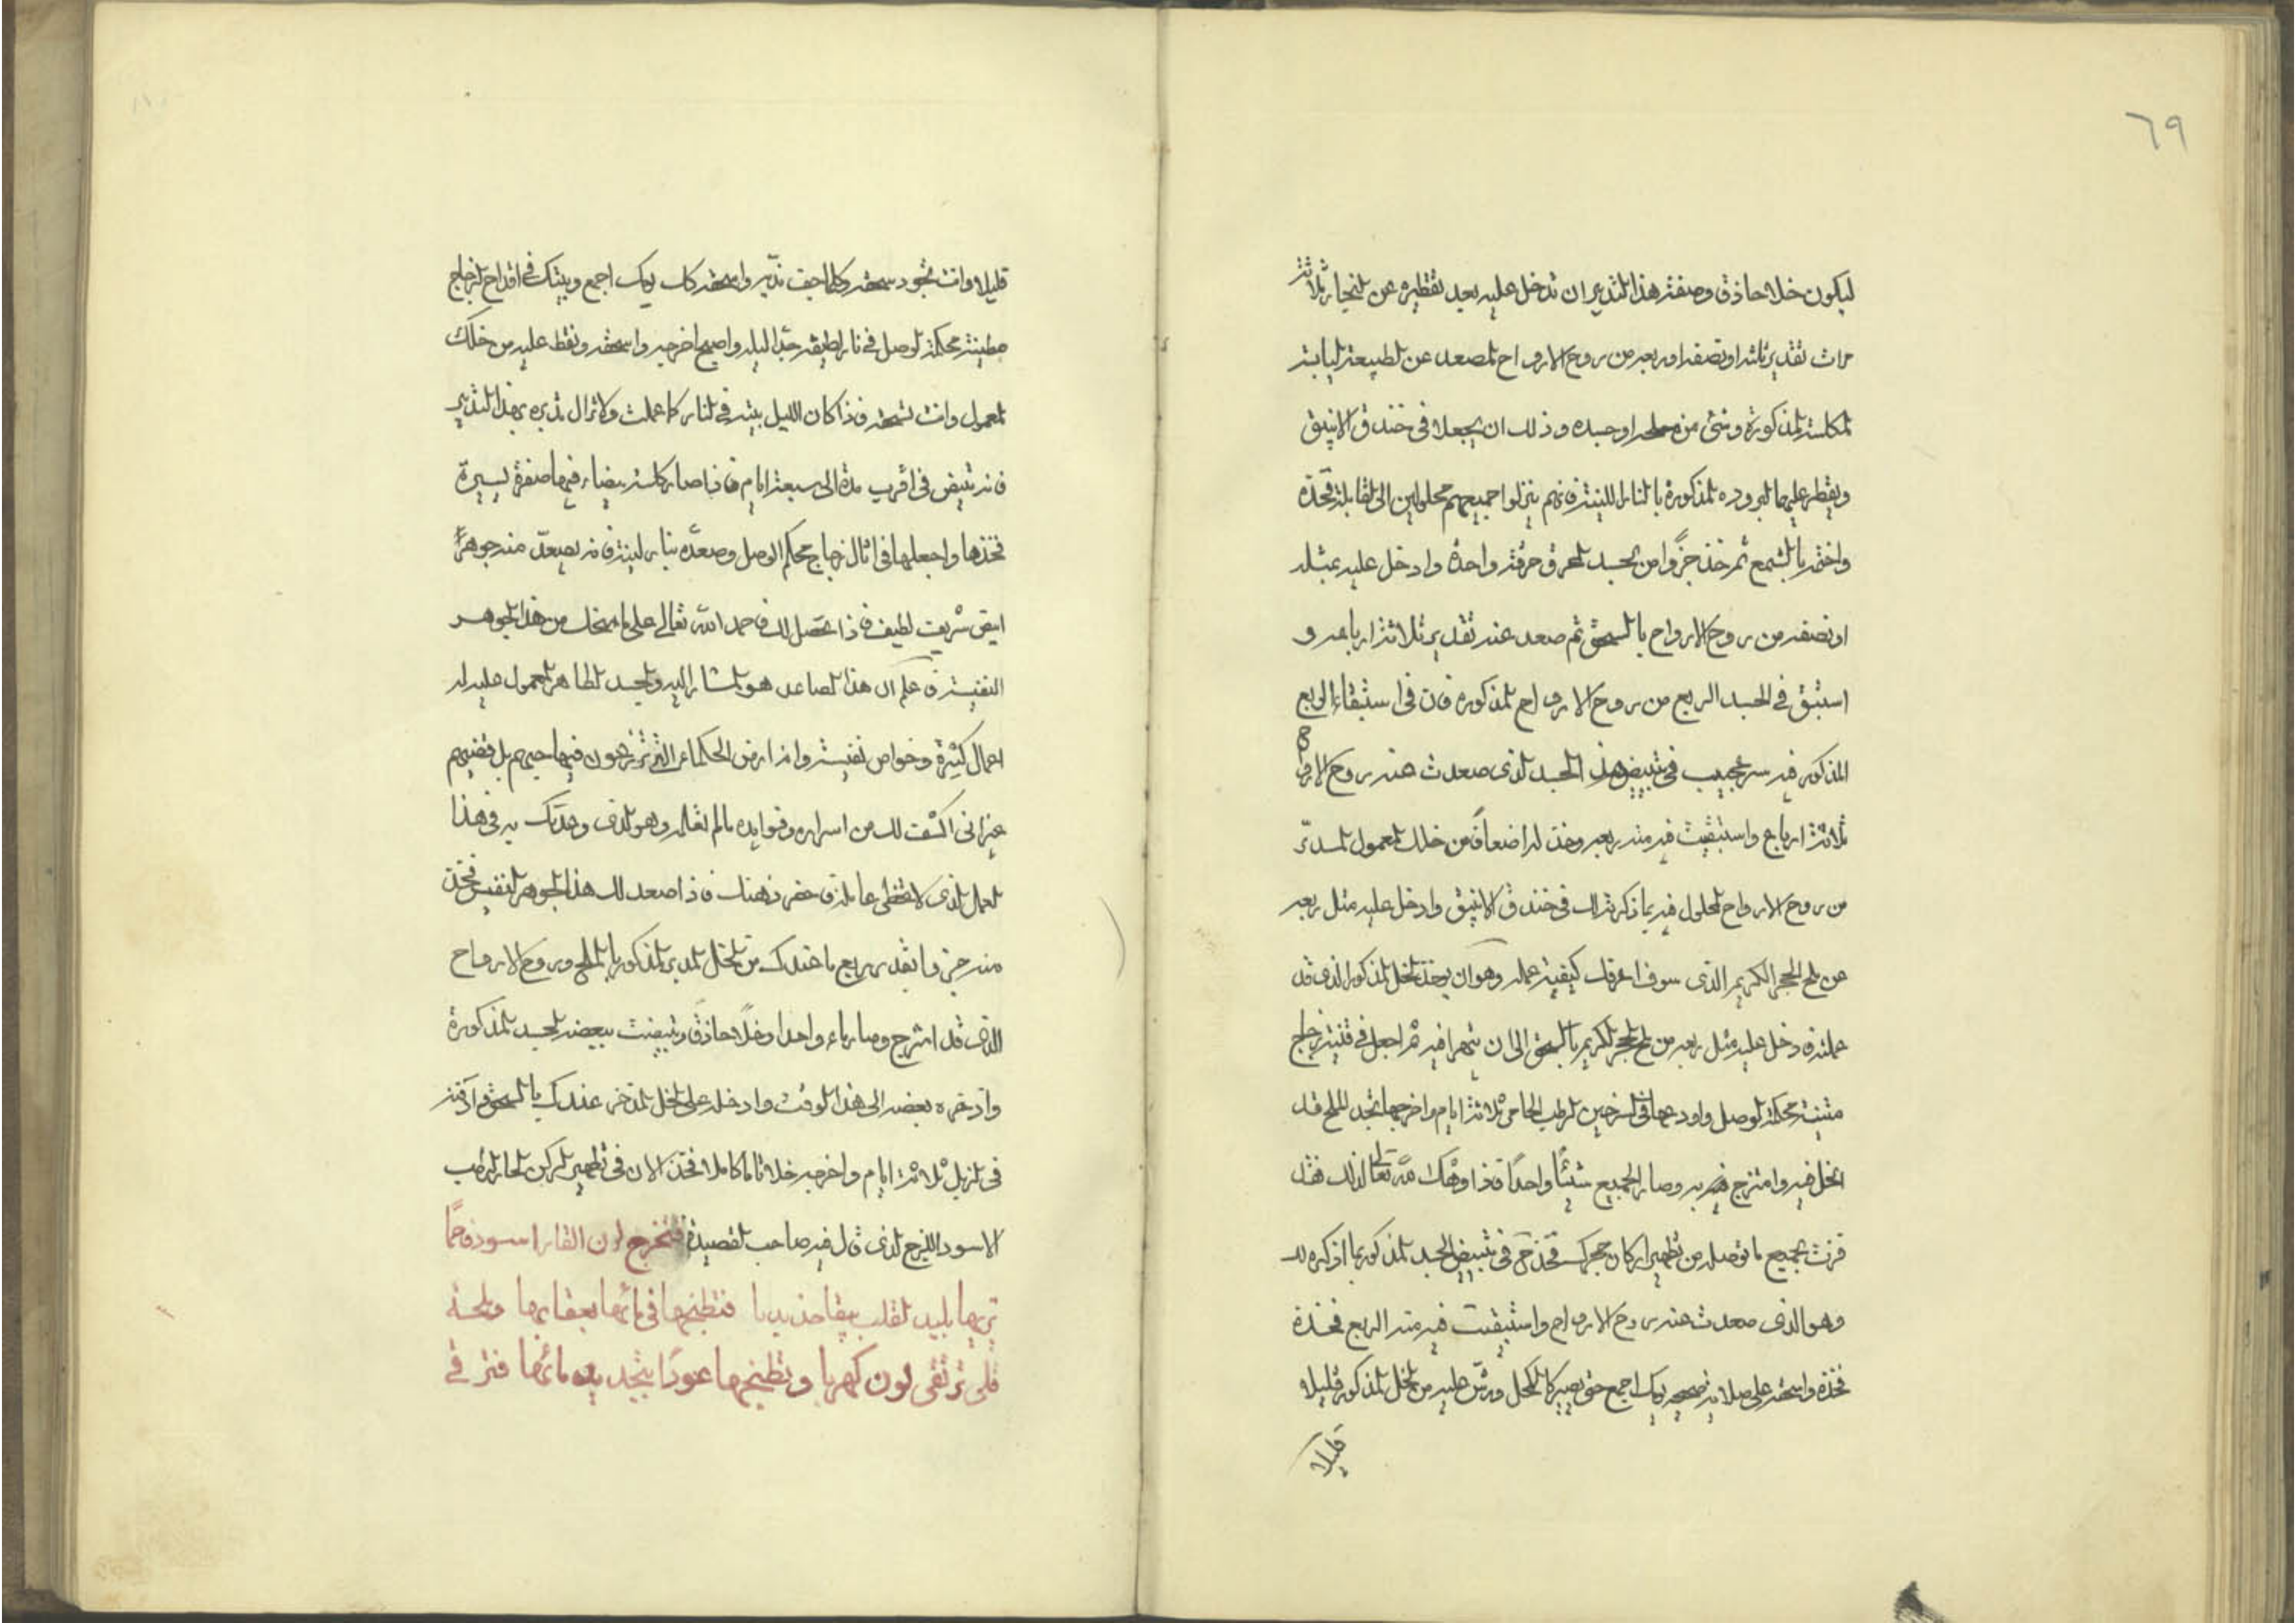 ٦٩
ليكون خلا حاذق وصفة هذا التدبير ان تدخل عليه بعد تقطيره عن الزنجار ثلاثة
مرات تقدير ثلثه او نصفه او ربعه من روح الارواح المصعد عن الطبيعة اليابسة
المكلسة المذكورة وشئ من ملحه او جسده وذلك ان يجعلا فى خندق الانبيق
ويقطر عليهما البروده المذكورة بالنار اللينة فانهم ينزلوا جميعهم محلولين الى القابلة فخذه
واختم بالشمع ثم خذ جزوا من الجسد المحرق حرقة واحدة وادخل عليه بمثله
او نصفه من روح الارواح بالسحق ثم صعد عنه تقدير ثلاثة ارباعه و
استبق فى الجسد الربع من روح الارواح المذكوره فان فى استبقاء الربع
المذكور فيه سر عجيب فى تبييض هذا الجسد الذى صعدت عنه روح الارواح
ثلاثة ارباع واستبقيت فيه منه ربعه وخذ له اضعافا من خلك المعمول المدبر
من روح الارواح المحلول فيه بما ذكرته لك فى خندق الانبيق وادخل عليه مثل ربعه
من ملح الحجر الكريم الذى سوف اعرفك كيفية عمله وهو ان يوخذ الخل المذكور الذى قد
عملته فادخل عليه مثل ربعه من ملح الحجر الكريم بالسحق الى ان يتهرا فيه ثم اجعل فى قنينة زجاج
متينة محكمة الوصل واودعها فى السرجين الرطب الحامى ثلاثة ايام واخرجها تجد الملح قد
انحل فيه وامتزج به وصار الجميع شيئا واحدا فاذا وهبك الله تعالى لذلك فقد
فزت بجميع ما توصله من تطهير اركان حجرك فخذ حق فى تبييض الجسد المذكور بما اذكره لك
وهو الذى صعدت عنه روح الارواح واستبقيت فيه منه الربع فخذه
فخذه واسحقه على صلاية صحيحه يومك اجمع حتى يصير كالكحل ورش عليه من الخل المذكور قليلا
قليلا
قليلا وانت تجود سحقه وكلما جف نديه واسحقه كذلك يومك اجمع وبيتك فى اقداح الزجاج
مطينة محكمة الوصل فى نار لطيفة جدا ليله واصبح اخرجه واسحقه ونقط عليه من خلك
المعمول وانت تسحقه فاذا كان الليل بيته فى النار كما عملت ولا تزال تدبره بهذا التدبير
فانه يتبيض فى اقرب مدة الى سبعة ايام فاذا صار كلسه بيضاء فيها صفرة يسيرة
فخذها واجعلها فى اثال زجاج محكم الوصل وصعده بنار لينة فانه يصعد منه جوهرا
ابيض شريف لطيف فاذا تحصل لك فاحمد الله تعالى على ما منحك من هذا الجوهر
النفيسة فاعلم ان هذا الصاعد هو المشار اليه والجسد الطاهر المعمول عليه له
اعمال كثيرة وخواص نفيسة وانه ارض الحكماء التى يزرعون فيها حبهم بل فضتهم
غير انى اكشف لك من اسراره وفوايده ما لم تعلم وهو الذى وعدتك به فى هذا
العمل الذى لا تخطى عامله فاحضر ذهنك فاذا صعد لك هذا الجوهر النفيس فخذ
منه جزوا بقدر ربع ما عندك من الخل المدبر المذكور بالملح وروح الارواح
الذى قد امتزج وصار ماء واحدا وخلا حاذقا وتبيضت ببعضه الجسد المذكورة
وادخره بعضه الى هذا الوقت وادخله على الخل المدخر عندك بالسحق وادفنه
فى الزبل ثلاثة ايام واخرجه خلا تاما كاملا فخذ الان فى تطهير الركن الحار الرطب
الاسود اللزج الذى قال فيه صاحب القصيدة فتخرج لون القار اسود فاحما
تريها بليد القلب فتطبخها فى مائها بعقارها
قلى ترتقى لون كهربا وتطبخها عودا بتجديد مائها فتر فى